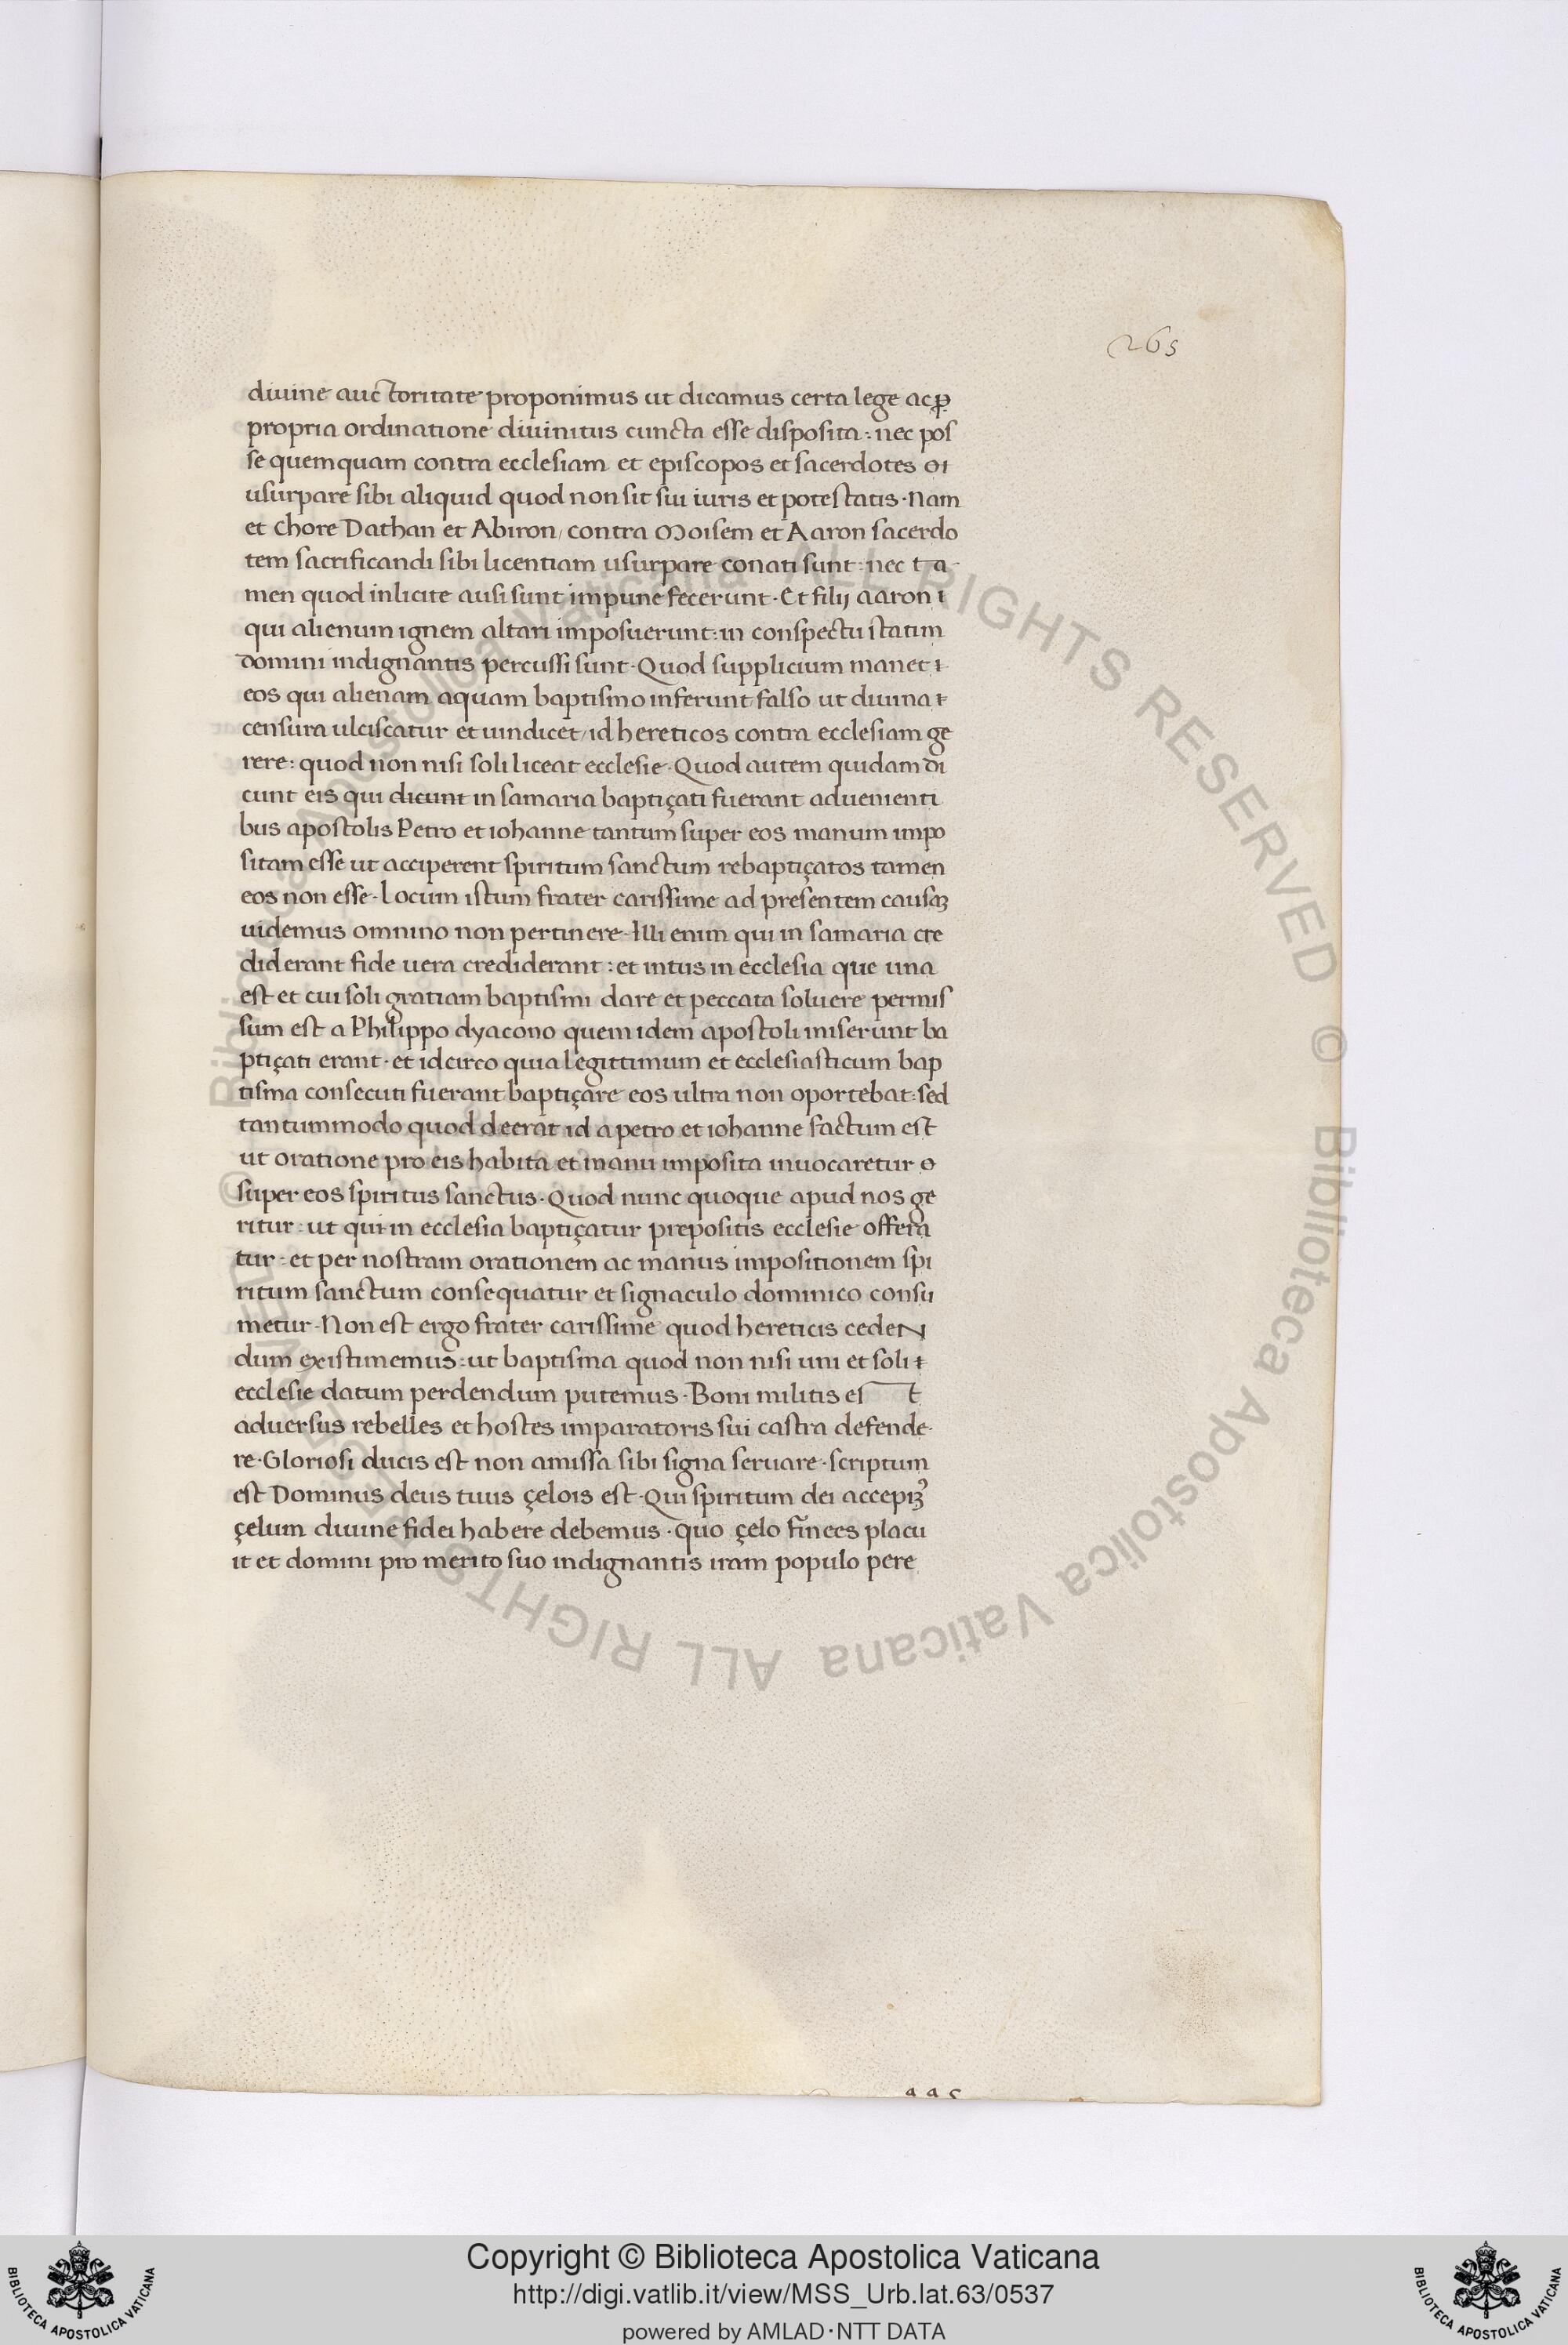 265
diuine auctoritate proponimus ut dicamus certa lege ac ꝓ
propria ordinatione diuinitus cuncta esse disposita : nec pos
se quemquam contra ecclesiam et episcopos et sacerdotes
usurpare sibi aliquid quod non sit sui iuris et potestatis · Nam
et Chore Dathan et Abiron / contra Moisem et Aaron sacerdo
tem sacrificandi sibi licentiam usurpare conati sunt : nec ta-
men quod inlicite ausi sunt impune fecerunt · Et filij aaron
qui alienum ignem altari imposuerunt : in conspectu statim
domini indignantis percussi sunt · Quod supplicium manet
eos qui alienam aquam baptismo inferunt falso ut diuina
censura ulciscatur et uindicet / id hereticos contra ecclesiam ge
rere : quod non nisi soli liceat ecclesie · Quod autem quidam di
cunt eis qui dicunt in samaria baptiçati fuerant aduenienti
bus apostolis Petro et iohanne tantum super eos manum impo
sitam esse ut acciperent spiritum sanctum rebaptiçatos tamen
eos non esse · Locum istum frater carissime ad presentem causaꝫ
uidemus omnino non pertinere · Illi enim qui in samaria cre
diderant fide uera crediderant : et intus in ecclesia que una
est et cui soli gratiam baptismi dare et peccata soluere permis
sum est a Philippo dyacono quem idem apostoli miserunt ba
ptiçati erant · et idcirco quia legittimum et ecclesiasticum bap
tisma consecuti fuerant baptiçare eos ultra non oportebat : sed
tantummodo quod deerat id a petro et iohanne factum est
ut oratione pro eis habita et manu imposita inuocaretur
super eos spiritus sanctus · Quod nunc quoque apud nos ge
ritur : ut qui in ecclesia baptiçatur prepositis ecclesie offera
tur : et per nostram orationem ac manus impositionem spi
ritum sanctum consequatur et signaculo dominico consu
metur · Non est ergo frater carissime quod hereticis ceden
dum existimemus : ut baptisma quod non nisi uni et soli
ecclesie datum perdendum putemus · Boni militis est
aduersus rebelles et hostes imparatoris sui castra defende-
re · Gloriosi ducis est non amissa sibi signa seruare · scriptum
est Dominus deus tuus çelois est · Qui spiritum dei accepiꝫ᾿
çelum diuine fidei habere debemus · quo çelo finees placu
it et domini pro merito suo indignantis iram populo pere
Copyright © Biblioteca Apostolica Vaticana
http://digi.vatlib.it/view/MSS_Urb.lat.63/0537
powered by AMLAD·NTT DATA
BIBLIOTECA APOSTOLICA VATICANA
BIBLIOTECA APOSTOLICA VATICANA
© Biblioteca Apostolica Vaticana ALL RIGHTS RESERVED © Biblioteca Apostolica Vaticana ALL RIGHTS RESERVED